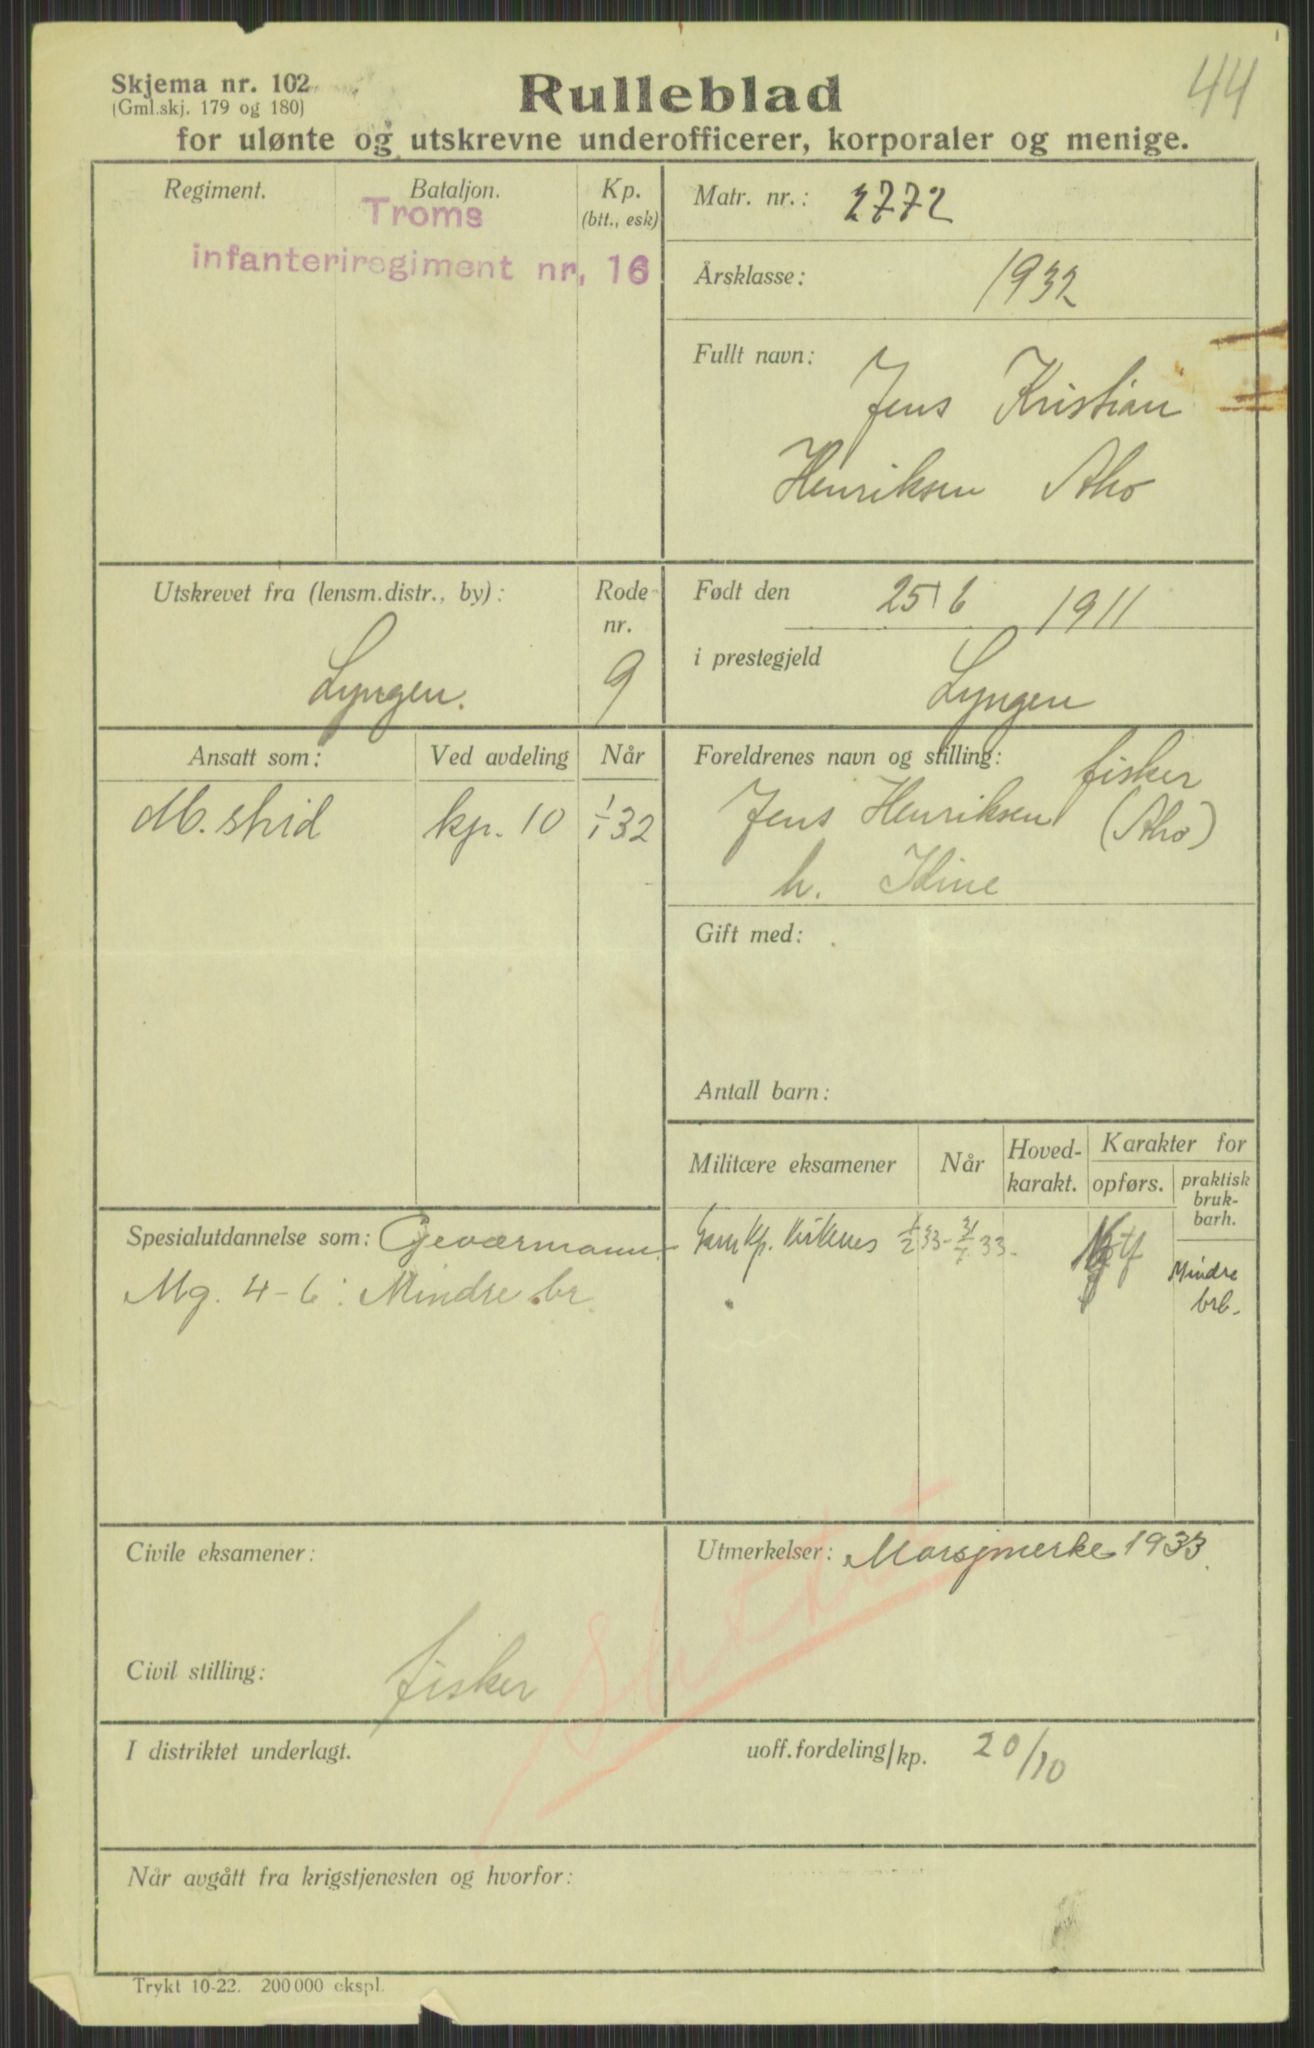 44
Skjema nr. 102
(Gml.skj. 179 og 180)
Rulleblad
for ulønte og utskrevne underofficerer, korporaler og menige.
Regiment. Bataljon. Kp.
(btt., esk)
Troms
infanteriregiment nr. 16
Matr. nr.: 2772
Årsklasse: 1932
Fullt navn: Jens Kristian
Henriksen Aho
Utskrevet fra (lensm.distr., by): Rode nr.
Lyngen. 9
Født den 25/6 1911
i prestegjeld Lyngen
Ansatt som: Ved avdeling Når
M. strid kp. 10 1/1 32
Foreldrenes navn og stilling: fisker
Jens Henriksen (Aho)
h. Idine
Gift med:
Antall barn:
Militære eksamener Når Hoved-karakt. Karakter for
opførs. praktisk bruk-barh.
Kp. Kirknes 1/2 33 - 31/7 33 - Mindre
brb.
Spesialutdannelse som: Geværmann
Mg. 4-6: Mindre br.
Civile eksamener:
Utmerkelser: Marsjmerke 1933.
Civil stilling: fisker
Slettet
I distriktet underlagt. uoff.fordeling/kp. 20/10
Når avgått fra krigstjenesten og hvorfor:
Trykt 10-22. 200 000 ekspl.